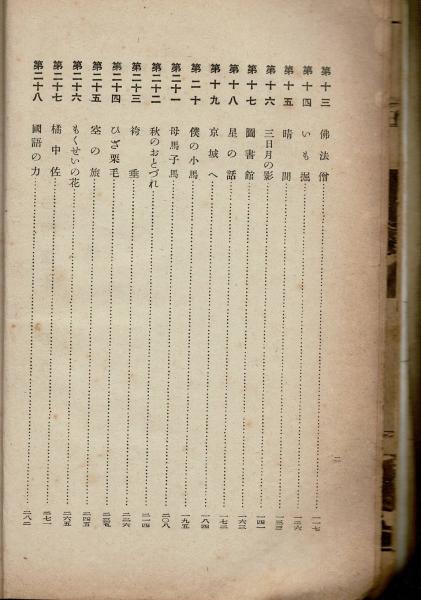 第十三 佛法僧 一一七
第十四 いも掘 一二六
第十五 晴間 一三三
第十六 三日月の影 一四一
第十七 圖書館 一六二
第十八 星の話 一七二
第十九 京城へ 一八四
第二十 僕の小馬 一九五
第二十一 母馬子馬 二〇八
第二十二 秋のおとづれ 二一四
第二十三 袴垂 二二六
第二十四 ひざ栗毛 二三五
第二十五 空の旅 二四五
第二十六 もくせいの花 二六五
第二十七 橘中佐 二七一
第二十八 國語の力 二八二
二